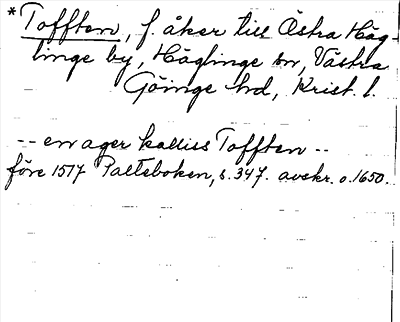 *Tofften, f. åker till Östra Häg-
linge by, Häglinge sn, Västra
Göinge hd, Krist. l.
-- en ager kalliss Tofften --
före 1517 Palteboken, s. 347. avskr. o. 1650.